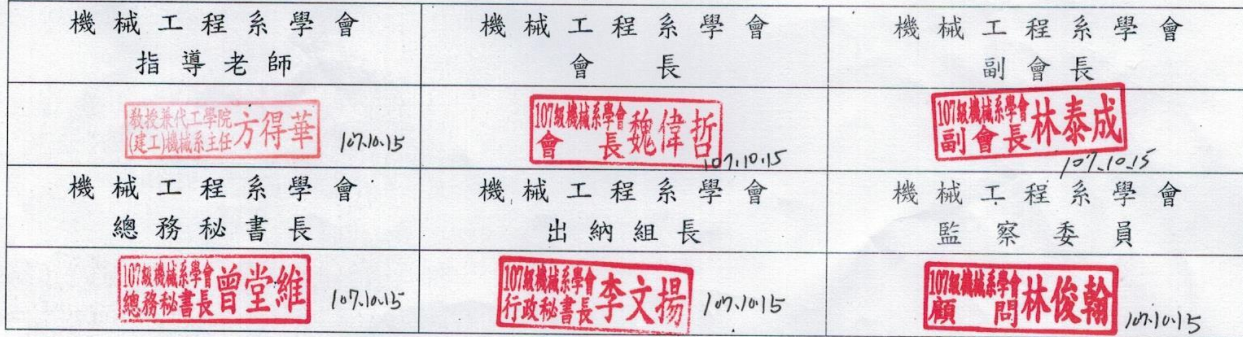 機械工程系學會
指導老師
機械工程系學會
會長
機械工程系學會
副會長
教授兼代工學院
(建工)機械系主任
方得華
107.10.15
107級機械系學會
會長
魏偉哲
107.10.15
107級機械系學會
副會長
林泰成
107.10.15
機械工程系學會
總務秘書長
機械工程系學會
出納組長
機械工程系學會
監察委員
107級機械系學會
總務秘書長
曾堂維
107.10.15
107級機械系學會
行政秘書長
李文揚
107.10.15
107級機械系學會
顧問
林俊翰
107.10.15